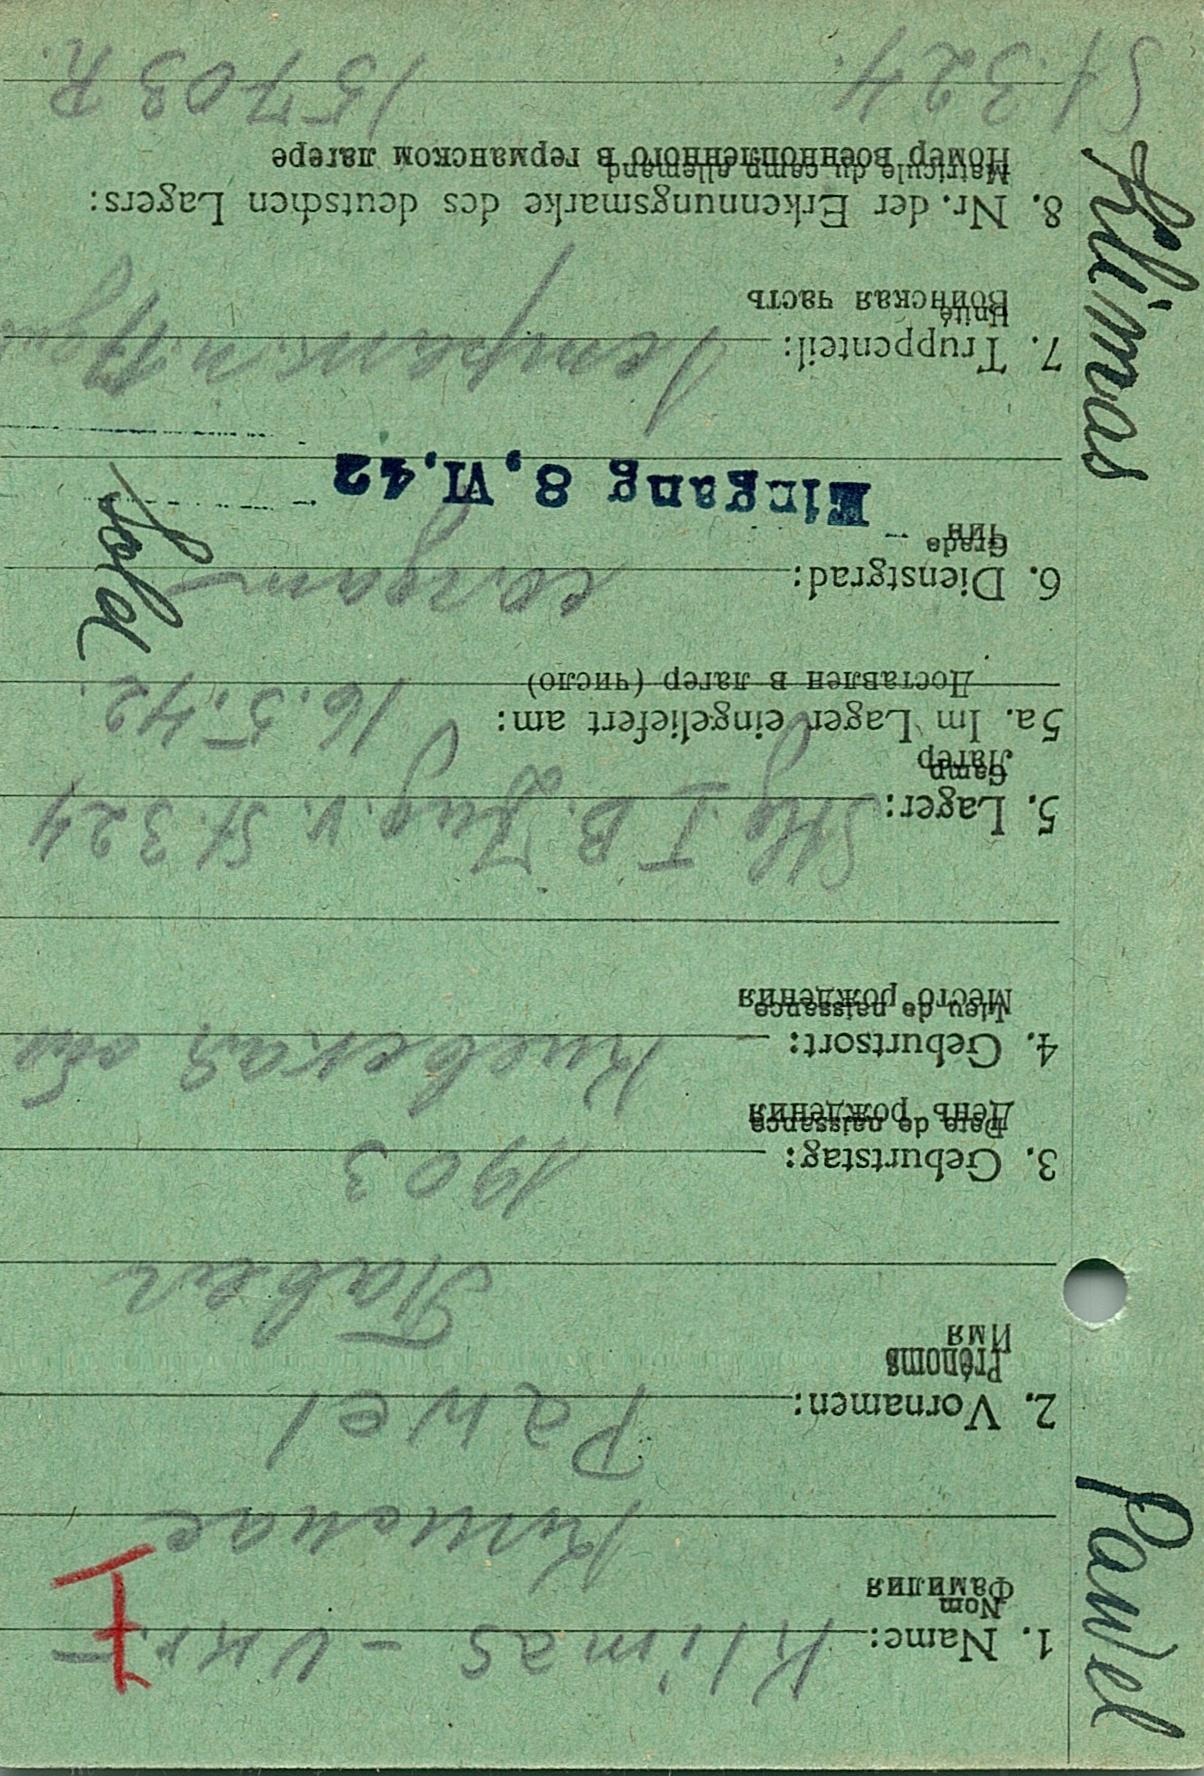 Klimas
Pawel
1. Name: Klimas – Ukr. –
Nom
Фамилия
Климас
2. Vornamen: Pawel
Prénoms
Имя
Павел
3. Geburtstag: 1903
Date de naissance
День рождения
4. Geburtsort: Киевская обл.
Lieu de naissance
Место рождения
5. Lager: Stlg. I B. Zug. v. St. 324
Camp
Лагер
5a. Im Lager eingeliefert am: 16.5.42.
Доставлен в лагер (число)
6. Dienstgrad: солдат
Grade
Чин
Sold
Eingang 8. VI. 42
7. Truppenteil:
Unité
Воинская часть
8. Nr. der Erkennungsmarke des deutschen Lagers:
Matricule du camp allemand
Номер военнопленного в германском лагере
St. 324. 15703 R.